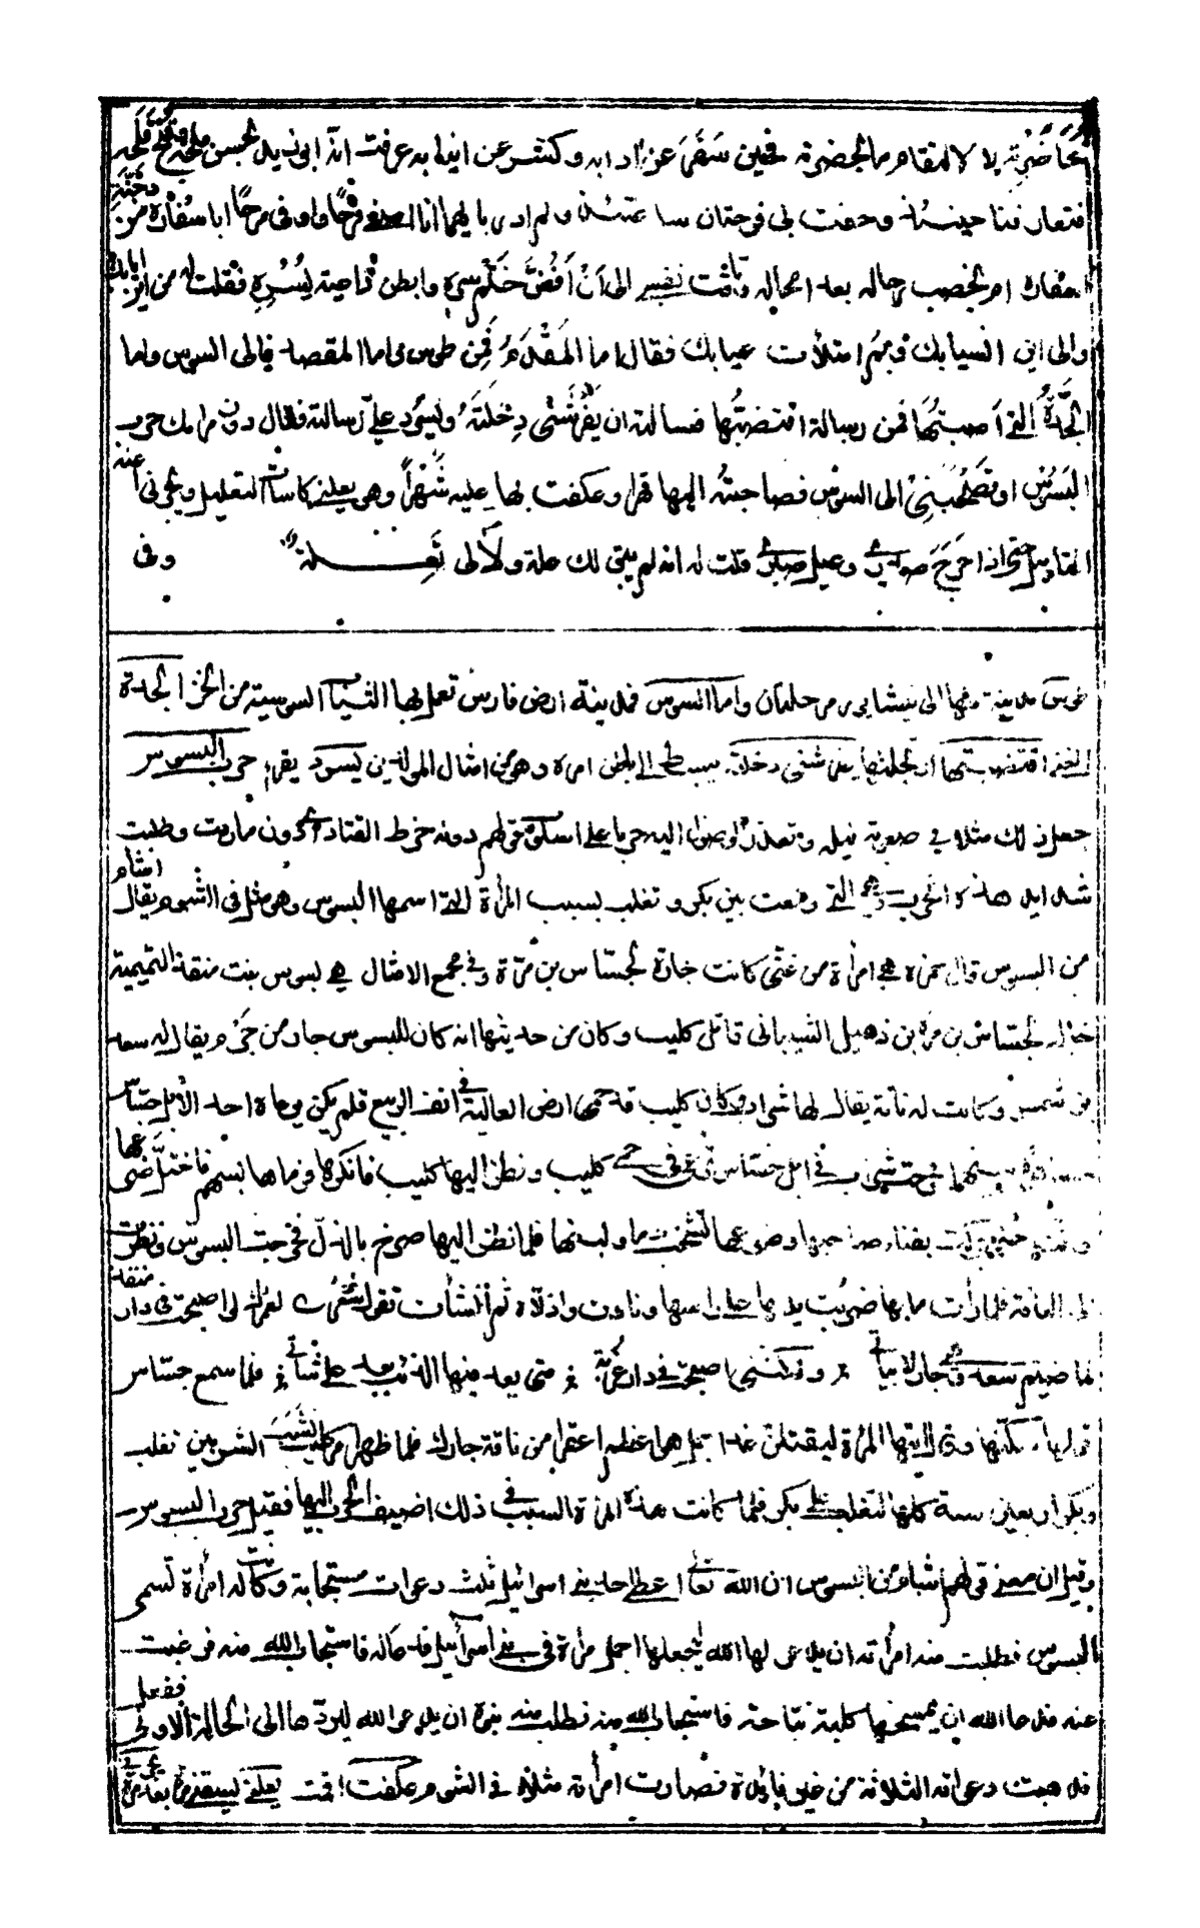 محاضرته يلا لا لمقامر ما لحضرته فحين سفر عن ادابه وكشر عن انيابه عرفت انه ابو زيد لحسن ملحه وقبح قلحه
فتعارفنا حينئذ وحفت بى فرحتان ساعتئذ ولم ادر بايهما انا اصفى فرحا واوفى مرحا اباسفاره من دجنة
اسفاره ام بخصب رحاله بعد امحاله وتاقت نفسى الى ان افض ختم سره وابطن داعية يسره فقلت له من اين ايابك
والى اين انسيابك وبم امتلأت عيابك فقال اما المقدم فمن طوس واما المقصد فالى السوس واما
الجدة التى اصبتها فمن رسالة اقتضبتها فسالته ان يفرشنى دخلته ويسرد على رسالته فقال دون مرامك حرب
البسوس او تصحبنى الى السوس فصاحبته اليها قهرا وعكفت بها عليه شهرا وهو يعلنى كاسات التعليل ويجرنى اعنة
التاميل حتى اذا حرج صدرى وعيل صبرى قلت له انه لم يبق لك علة ولا لى تعلة وفى
طوس مدينة منها الى نيشابور مرحلتان واما السوس فمدينة ارض فارس تعمل بها الثياب السوسية من الخز الجدة
الغنى اقتضبتها ارتجلتها يفرشنى دخلته يبسط لى باطن امره وهو من امثال المولدين يسرد يقرء حرب البسوس
جعل ذلك مثلا فى صعوبة نيله وتعذر الوصول اليه جريا على اسلوب قولهم دونه خرط القتاد اى دون ما رمت وطلبت
شدايد هذه الحرب وهى التى وقعت بين بكر وتغلب بسبب المرأة التى اسمها البسوس وهو مثل فى الشوم يقال اشام
من البسوس قال حمزه هى امرأة من غنى كانت جارة لجساس بن مرة وفى مجمع الامثال هى بسوس بنت منقذ التميمية
خالة لجساس بن مره بن ذهل الشيبانى قاتل كليب وكان من حديثها انه كان للبسوس جار من جرم يقال له سعد
بن شمس وكانت له ناقة يقال لها سراب وكان كليب قد حمى ارض العالية فى انف الربيع فلم يكن يرعاه احد الا ابل جساس
فى حمى كليب ونظر اليها كليب فانكرها فرماها بسهم فاختل ضرعها
بفناء صاحبها وضرعها تشخب دما ولبنا فلما نظر اليها صرخ بالذل فخرجت البسوس ونظرت
الى الناقة فلما رأت ما بها ضربت يدها على راسها ونادت واذلاه ثم انشات تقول شعر لعمرك لو اصبحت فى دار منقذ
لما ضيم سعد وهو جار لابياتى ولكننى اصبحت فى دار غربة متى يعد فيها الذئب يعد على شاتى فلما سمع جساس
قولها سكنها وقال ايتها المرأة ليقتلن غدا جمل هو اعظم عقرا من ناقة جارك فلما ظهر من كليب الشر بين تغلب
وبكر اربعين سنة كلها لتغلب على بكر فلما كانت هذه المرأة السبب فى ذلك اضيف الحرب اليها فقيل حرب البسوس
وقيل ان معنى قولهم اشام من البسوس ان الله تعالى اعطى احد بنى اسرائيل ثلث دعوات مستجابة وكانت له امرأة تسمى
البسوس فطلبت منه امرأته ان يدعو لها الله ليجعلها اجمل مرأة فى بنى اسرائيل فدعا له فاستجاب الله منه فرغبت
عنه فدعا الله ان يمسخها كلبة نباحة فاستجاب الله منه فطلب منه بنوه ان يدعو الله ليردها الى الحالة الاولى ففعل
فذهبت دعواته الثلاثة من غير فايدة فصارت امرأته مثلا فى الشوم عكفت اقمت يعلنى يسقينى مرة بعد مرة